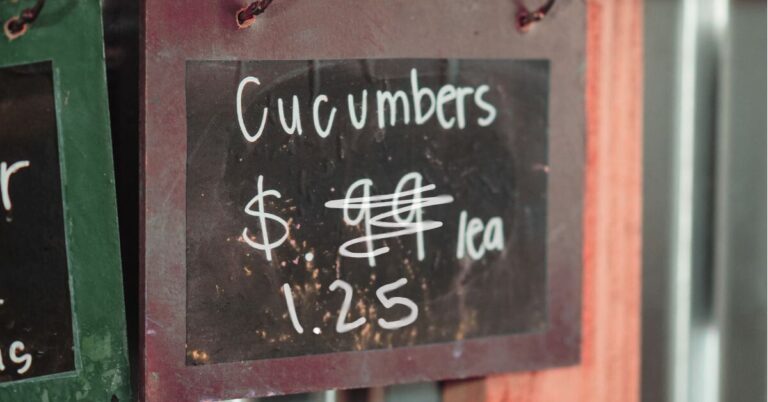 r
is
Cucumbers
$.99 /ea
1.25